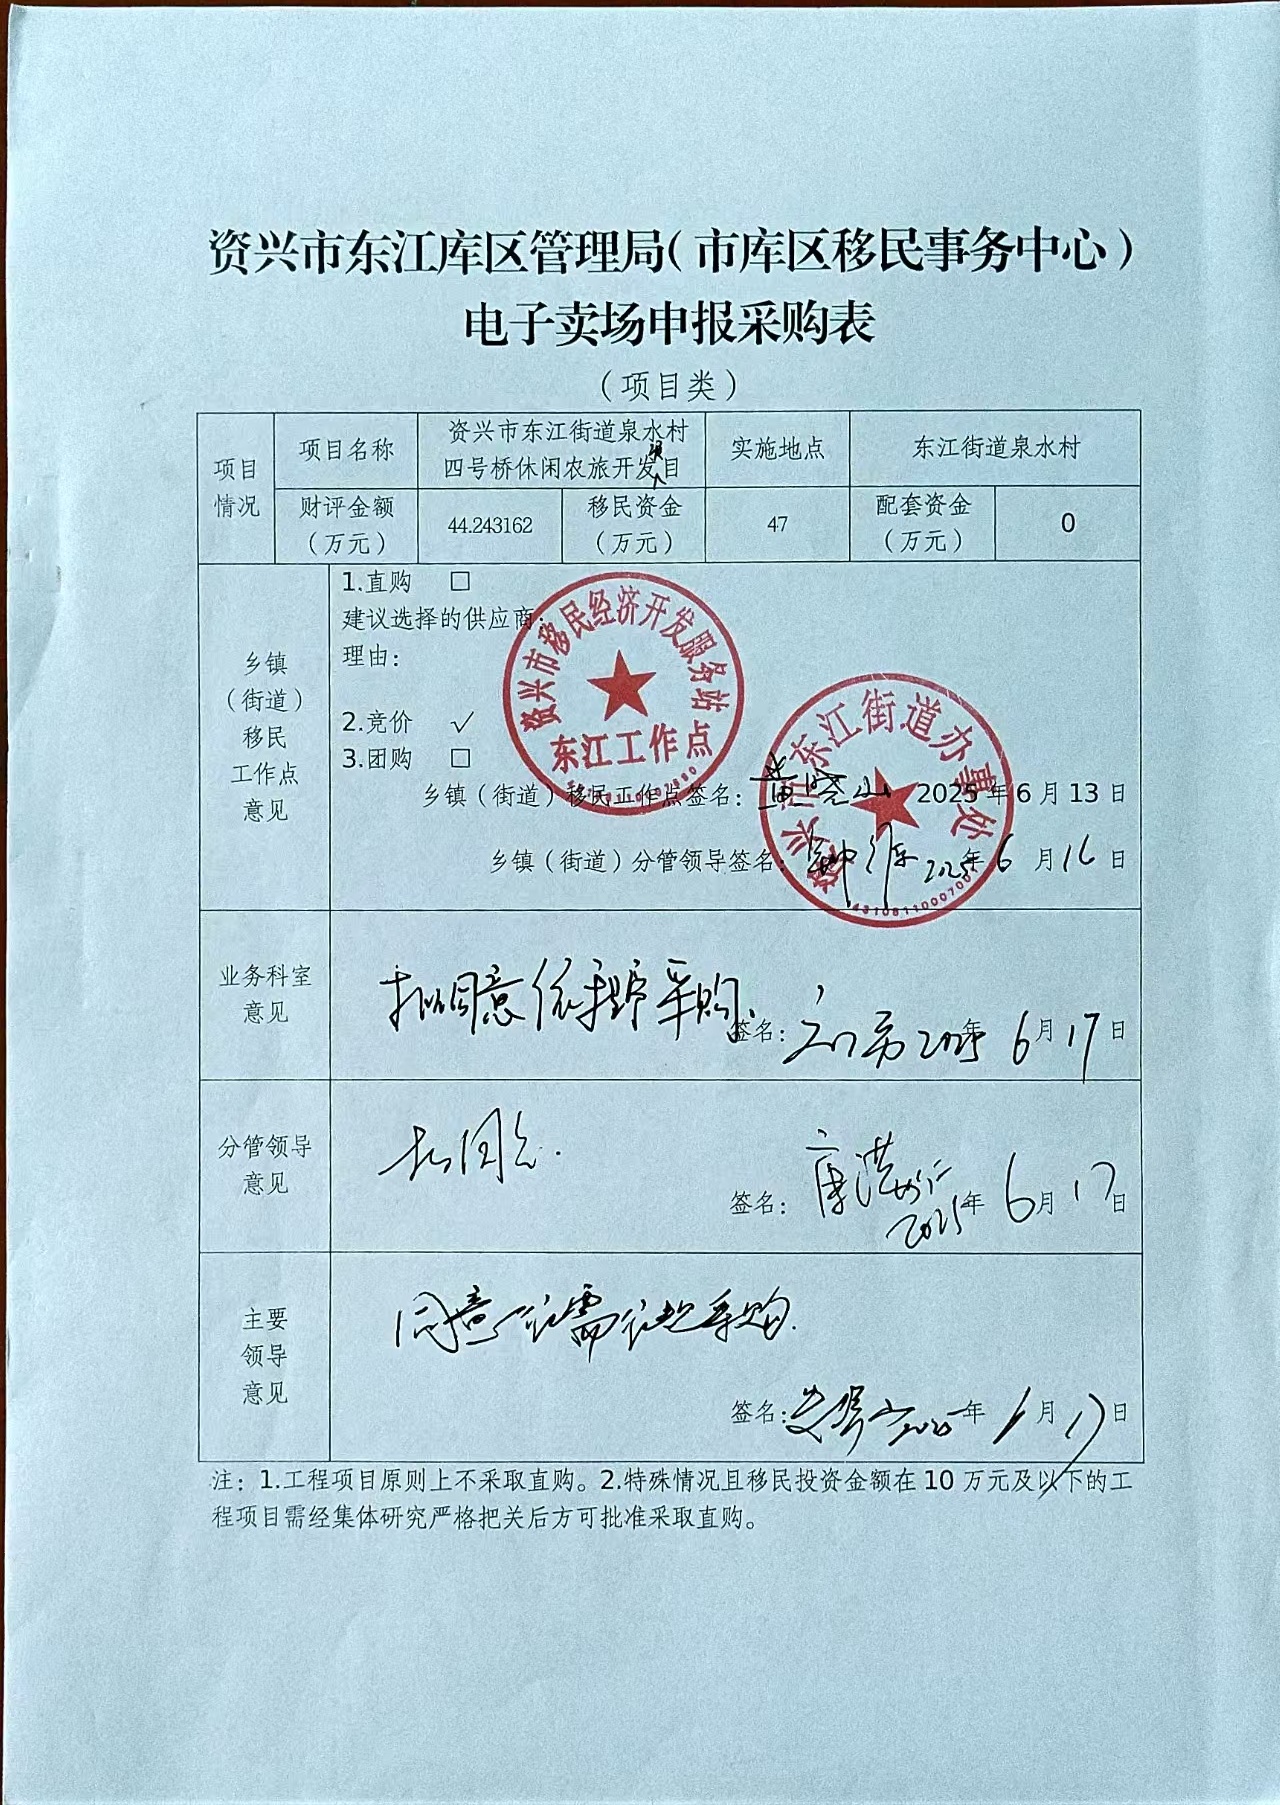 资兴市东江库区管理局（市库区移民事务中心）
电子卖场申报采购表
（项目类）
项目情况
项目名称
资兴市东江街道泉水村
四号桥休闲农旅开发项目
实施地点
东江街道泉水村
财评金额
（万元）
44.243162
移民资金
（万元）
47
配套资金
（万元）
0
乡镇
（街道）
移民
工作点
意见
1.直购 □
建议选择的供应商：
理由：
2.竞价 √
3.团购 □
资兴市移民经济开发服务站
东江工作点
资兴市东江街道办事处
4310811000700
乡镇（街道）移民工作点签名： 2025年6月13日
乡镇（街道）分管领导签名： 2025年6月16日
业务科室
意见
拟同意依程序采购.
签名： 2025年6月17日
分管领导
意见
拟同意.
签名： 2025年6月17日
主要
领导
意见
同意 采购.
签名： 2025年6月17日
注：1.工程项目原则上不采取直购。2.特殊情况且移民投资金额在10万元及以下的工
程项目需经集体研究严格把关后方可批准采取直购。